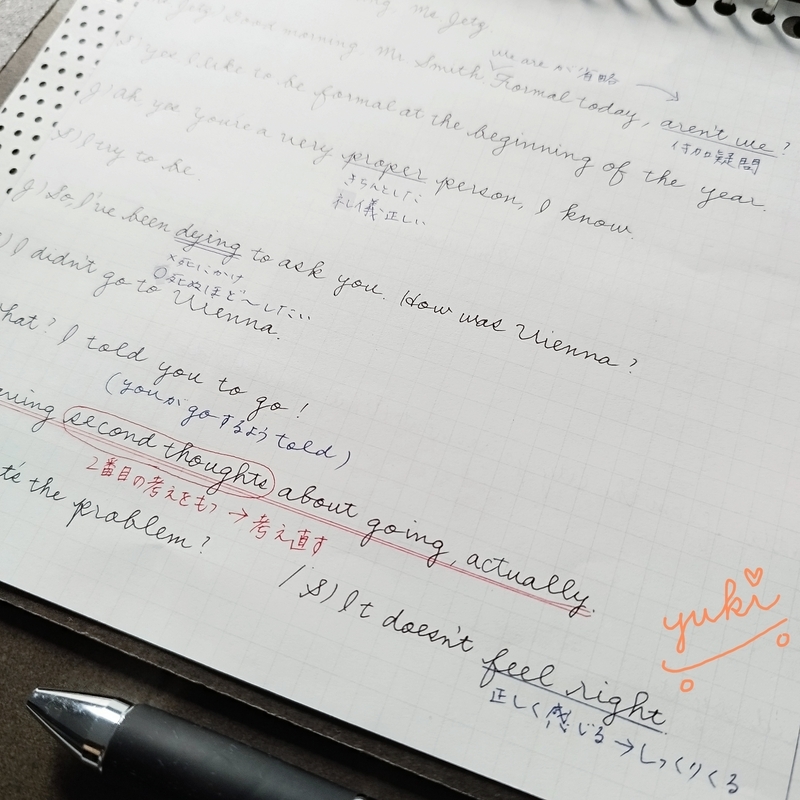 Ms. Jety.
Good morning, Mr. Smith. Formal today, aren't we?
we are が省略
付加疑問
S) Yes I like to be formal at the beginning of the year.
J) Ah, yes you're a very proper person, I know.
きちんとした
礼儀正しい
S) I try to be.
J) So, I've been dying to ask you. How was Vienna?
×死にかけ
○死ぬほど〜したい
) I didn't go to Vienna.
what? I told you to go!
(youがgoするようtold)
second thoughts about going, actually.
2番目の考えをもつ→考え直す
the problem?
S) It doesn't feel right.
正しく感じる→しっくりくる
yuki